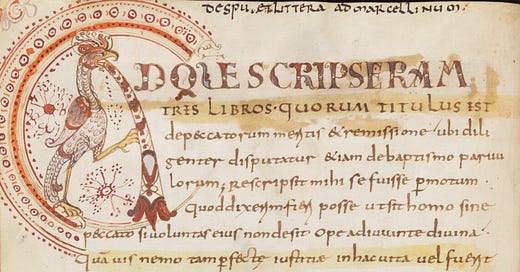 de spu. et littera ad marcellinum.
ADQUE SCRIPSERAM
TRES LIBROS · QUORUM TITULUS EST
depeccatorum meritis & remissione · ubi dili
genter disputatur &iam debaptismo paruu
lorum; Rescripsit mihi sefuisse pmotum ·
Quoddixerim fieri posse utsit homo sine
peccato sivoluntas eius nondesit · Ope adiuuante divina ·
Quāuis nemo tam pfecte iustitiae inhacuita uel fuerit